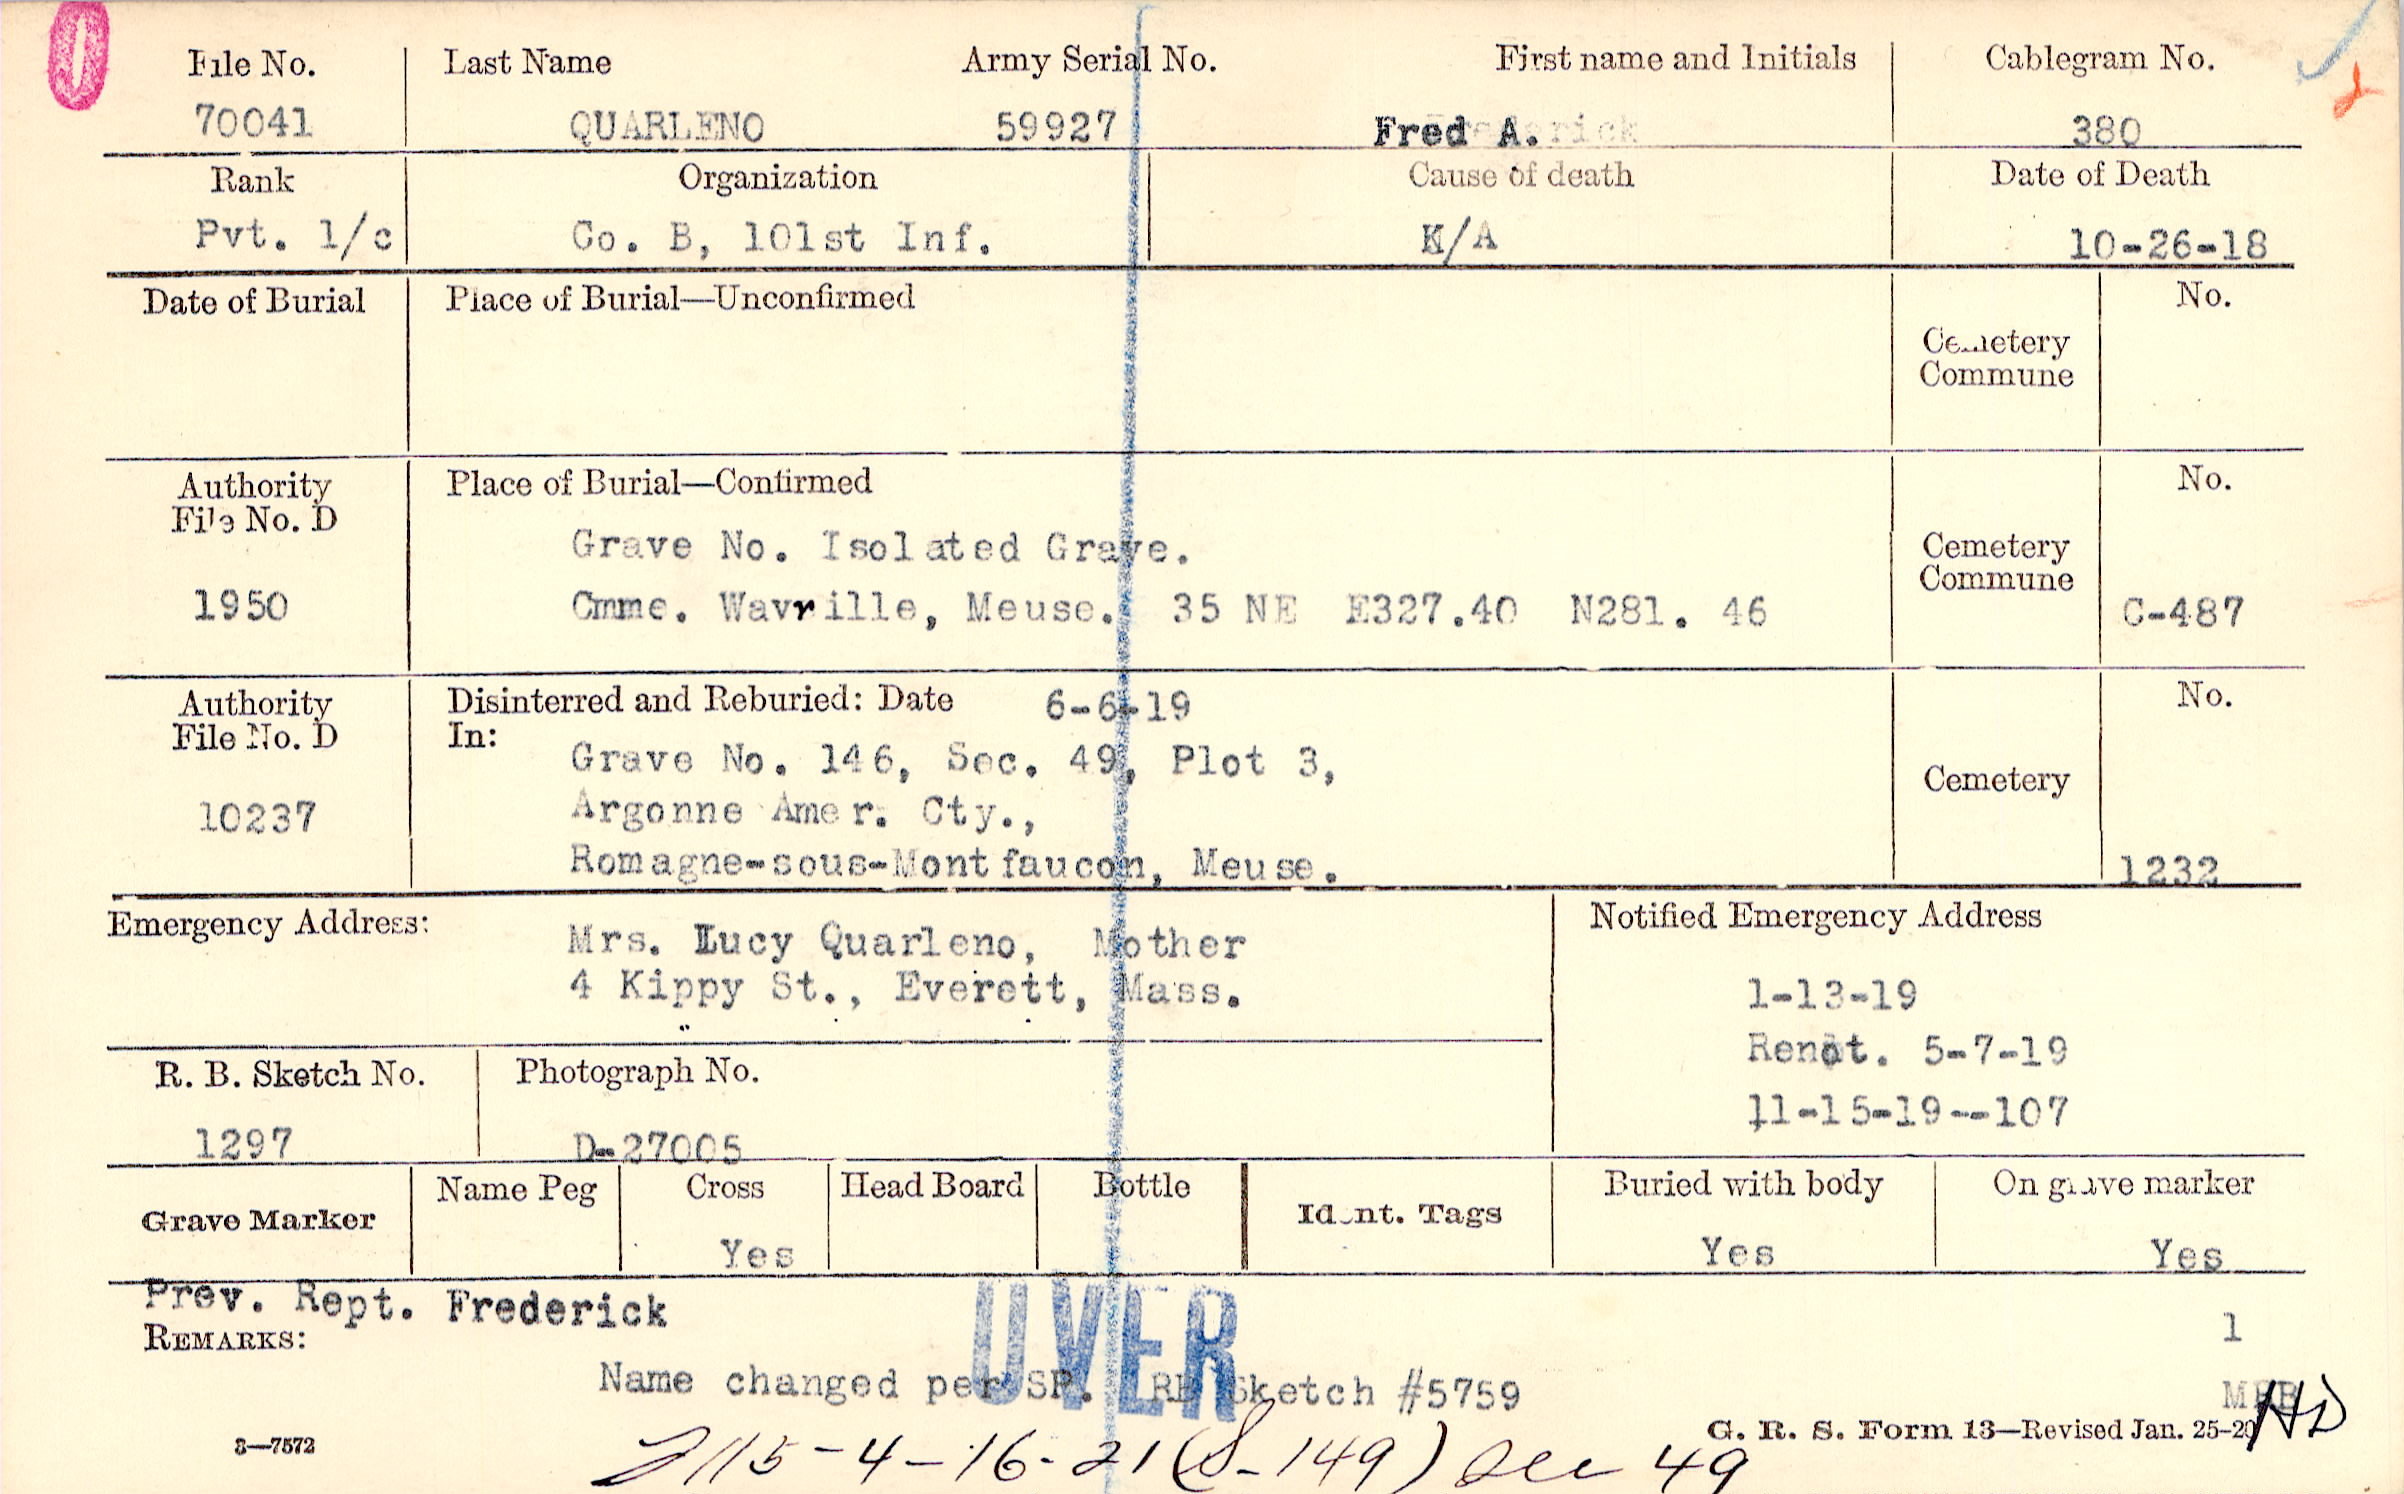 File No. Last Name Army Serial No. First name and Initials Cablegram No.
70041 QUARLENO 59927 Fred A. 380
Rank Organization Cause of death Date of Death
Pvt. 1/c Co. B, 101st Inf. K/A 10-26-18
Date of Burial Place of Burial—Unconfirmed No.
Cemetery
Commune
Authority Place of Burial—Confirmed No.
File No. D
Grave No. Isolated Grave. Cemetery
Commune
1950 Cmme. Wavrille, Meuse. 35 NE E327.40 N281. 46 C-487
Authority Disinterred and Reburied: Date 6-6-19 No.
File No. D In:
Grave No. 146, Sec. 49, Plot 3,
Cemetery
10237 Argonne Amer. Cty.,
Romagne-sous-Montfaucon, Meuse. 1232
Emergency Address: Notified Emergency Address
Mrs. Lucy Quarleno, Mother
4 Kippy St., Everett, Mass. 1-13-19
Renot. 5-7-19
R. B. Sketch No. Photograph No.
11-15-19--107
1297 D-27005
Name Peg Cross Head Board Bottle Buried with body On grave marker
Grave Marker Ident. Tags
Yes Yes Yes
Prev. Rept. Frederick
REMARKS: 1
OVER
Name changed per SR. RB Sketch #5759
HD
G. R. S. Form 13—Revised Jan. 25-20
3—7572
2115-4-16-21 (S-149) Sec 49